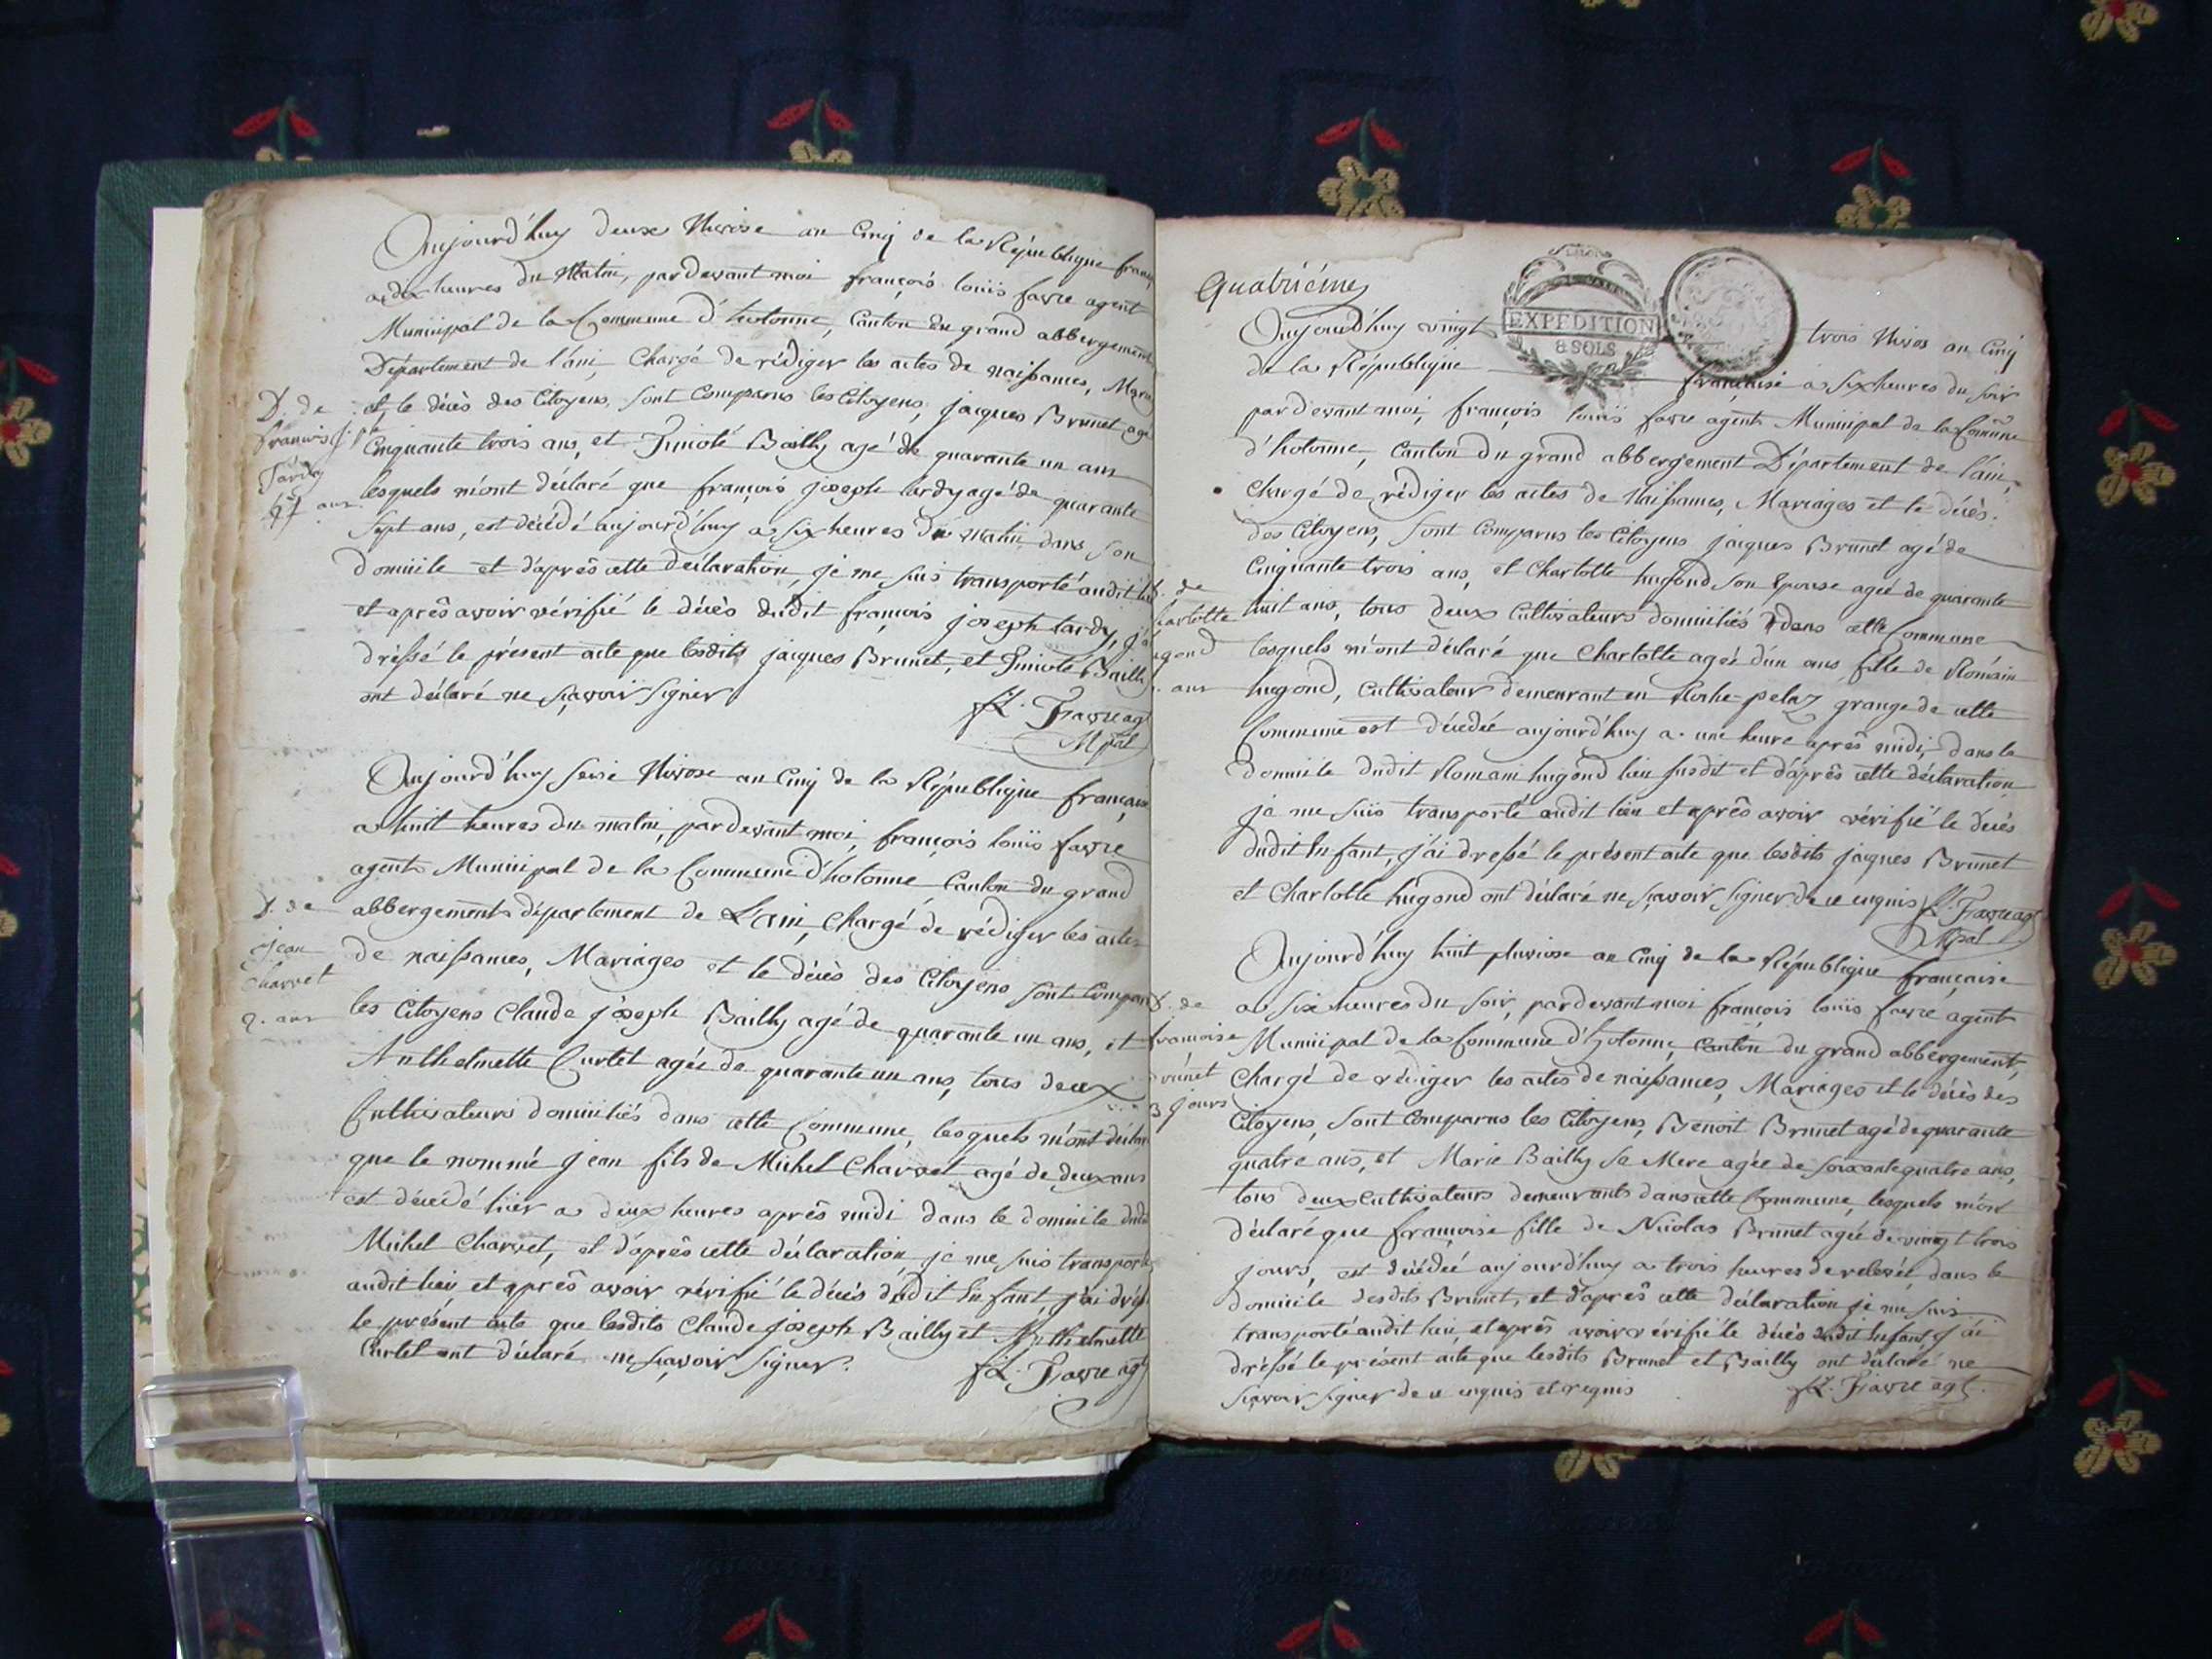 Aujourd'huy deux Nivose an Cinq de la République franç
a dix heures du Matin, pardevant moi françois loüis favre agent
Municipal de la Commune d'hotonne, Canton du grand abbergement
Département de l'ain, Chargé de rédiger les actes de naissances, Maria
et le décès des Citoyens, sont Comparus les Citoyens jacques Brunet agé
Cinquante trois ans, et Bailly agé de quarante un ans
lesquels m'ont déclaré que françois joseph tardy agé de quarante
Sept ans, est décédé aujourd'huy a six heures du matin dans son
domicile et d'après cette déclaration, je me suis transporté audit lieu
et après avoir vérifié le décès dudit françois joseph tardy, j'ai
dressé le présent acte que lesdits jacques Brunet, et Bailly
ont déclaré ne sçavoir signer
fL. Favre agt
Mpal
D. de
francois j.ph
Tardy
47 ans
Aujourd'huy seize Nivose an Cinq de la République française
a huit heures du matin, pardevant moi, françois loüis favre
agent Municipal de la Commune d'hotonne Canton du grand
abbergement département de L'ain, Chargé de rédiger les actes
de naissances, Mariages et le décès des Citoyens sont Compar
les Citoyens Claude joseph Bailly agé de quarante un ans, et
Anthelmette Curtet agée de quarante un ans, tous deux
Cultivateurs domiciliés dans cette Commune, lesquels m'ont décla
que le nommé jean fils de Michel Charvet agé de deux ans
est décédé hier a deux heures après midi dans le domicile dud
Michel Charvet, et d'après cette déclaration, je me suis transporté
audit lieu et après avoir vérifié le décès dudit Enfant, j'ai drés
le présent acte que lesdits Claude joseph Bailly et Anthelmette
Curtet ont déclaré ne sçavoir signer.
fL. Favre agt
D. de
jean
charvet
2. ans
Quatriéme
EXPEDITION
8 SOLS
Aujourd'huy vingt trois Nivos an Cinq
de la République française a six heures du soir
pardevant moi, françois loüis favre agent Municipal de la Comune
d'hotonne, Canton du grand abbergement Département de l'ain,
Chargé de rédiger les actes de Naissances, Mariages et le décès
des Citoyens, sont Comparus les Citoyens jacques Brunet agé de
Cinquante trois ans, et Charlotte hugond son Epouse agée de quarante
huit ans, tous deux Cultivateurs domiciliés dans cette Commune
lesquels m'ont déclaré que Charlotte agée d'un ans fille de Romain
hugond, Cultivateur demeurant en Roche-pelaz grange de cette
Commune est décédée aujourd'huy a une heure après midi, dans le
domicile dudit Romain hugond lieu susdit et d'après cette déclaration
je me suis transporté audit lieu et après avoir vérifié le décès
dudit Enfant, j'ai dressé le présent acte que lesdits jacques Brunet
et Charlotte hugond ont déclaré ne sçavoir signer de ce enquis fL. Favre agt
Mpal
D. de
harlotte
ugond
ans
Aujourd'huy huit pluviose an Cinq de la République française
a six heures du soir, pardevant moi françois loüis favre agent
Municipal de la Commune d'hotonne, Canton du grand abbergement,
Chargé de rédiger les actes de naissances, Mariages et le décès des
Citoyens, sont Comparus les Citoyens, Benoit Brunet agé de quarante
quatre ans, et Marie Bailly sa Mere agée de soixante quatre ans,
tous deux Cultivateurs demeurants dans cette Commune, lesquels m'ont
déclaré que françoise fille de Nicolas Brunet agée de vingt trois
jours, est décédée aujourd'huy a trois heures de relevée, dans le
domicile desdits Brunet, et d'après cette déclaration je me suis
transporté audit lieu, et après avoir vérifié le décès dudit Enfant j'ai
dréssé le présent acte que lesdits Brunet et Bailly ont déclaré ne
sçavoir signer de ce enquis et requis fL. Favre agt.
D. de
francoise
brunet
3 jours